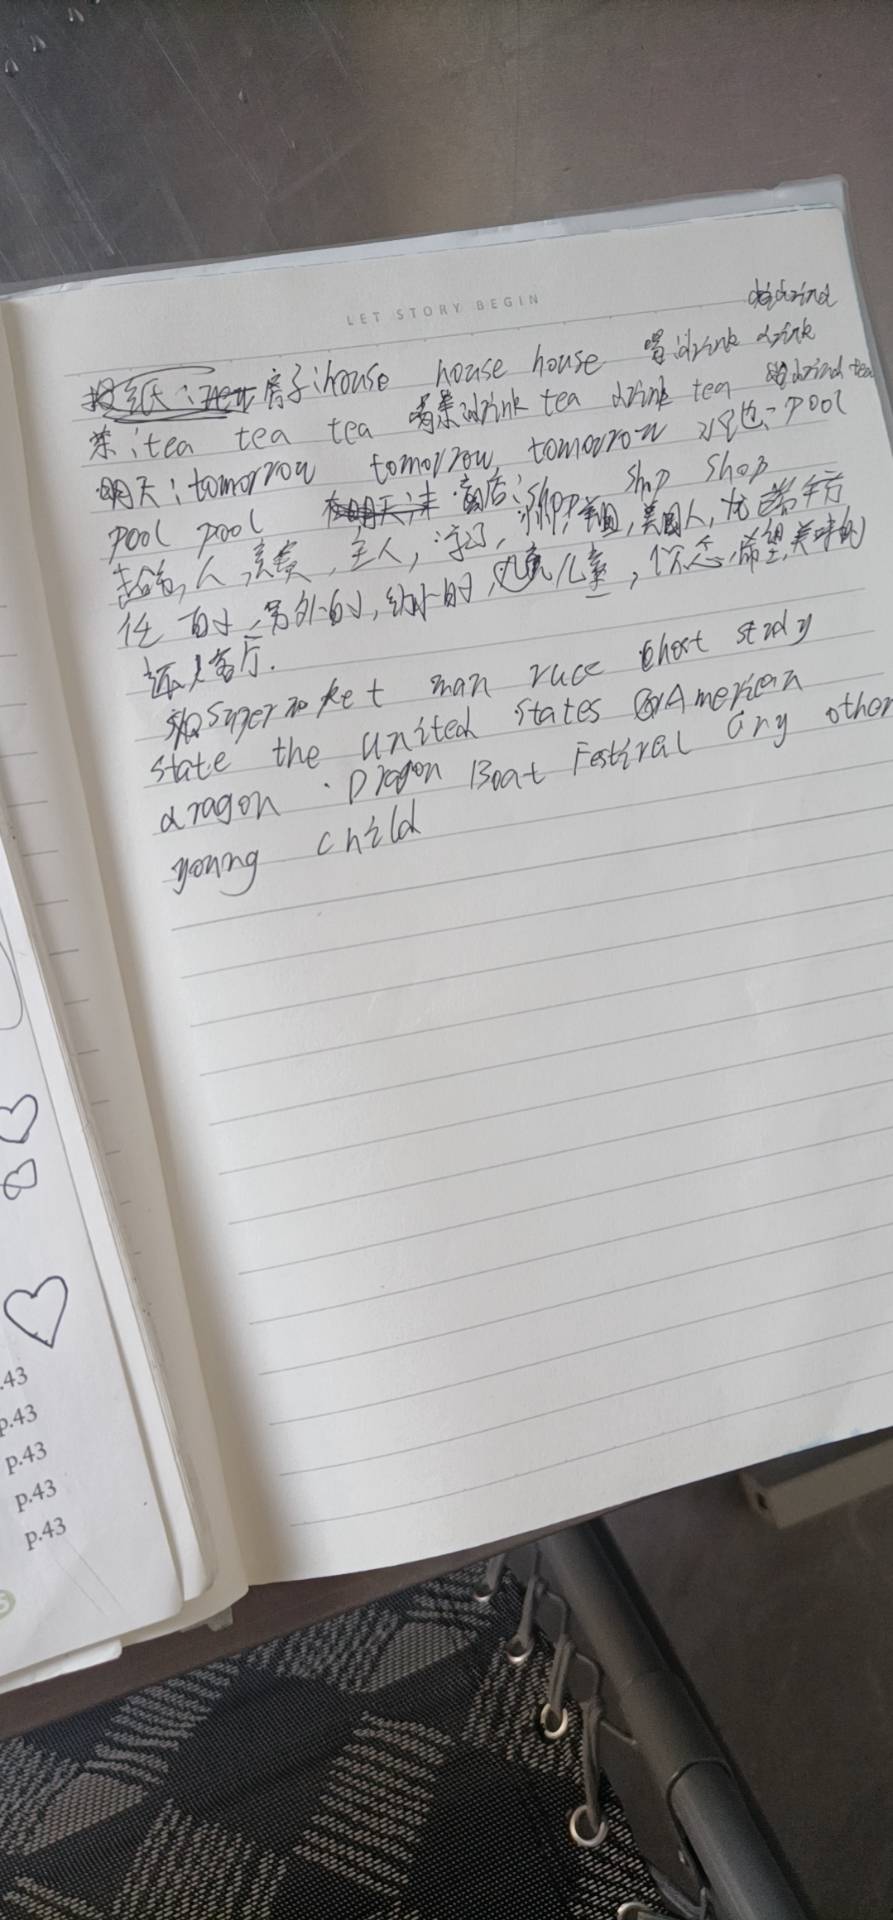 LET STORY BEGIN
drind
房子:house house house 喝:drink drink
茶:tea tea tea 喝茶:drink tea drink tea drind tea
明天:tomorrow tomorrow tomorrow 水池:pool
pool pool 商店:shop shop shop
人, 主人, 学习, 美国, 美国人, 龙
任何, 另外的, 幼小的, 儿童, 希望, 美味的
客厅.
man ruce Ghost study
state the united states American
dragon . Dragon Boat Festiral any other
young child
.43
p.43
p.43
p.43
p.43